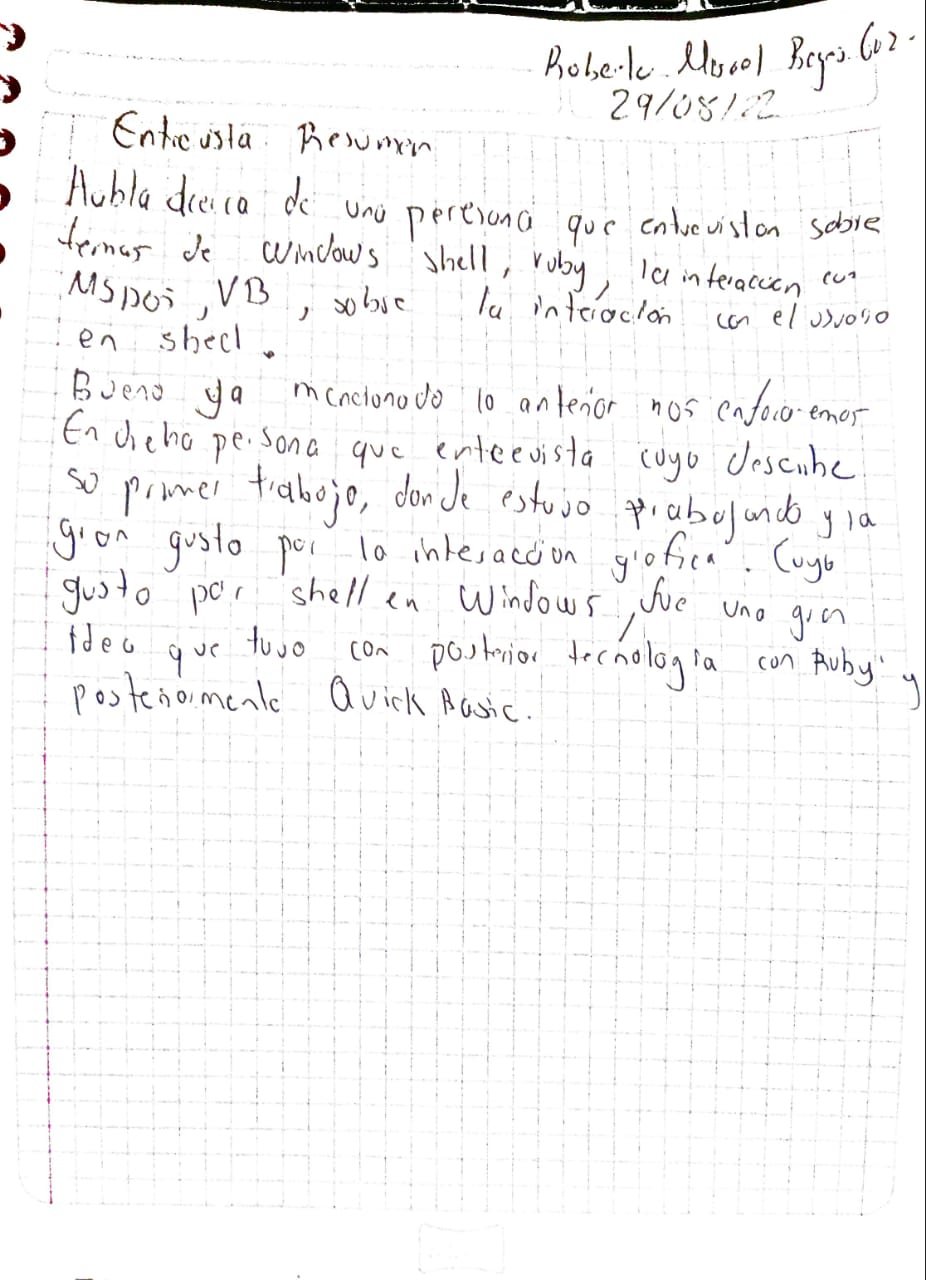 Roberto Reyes. 602.
29/08/22
Entrevista. Resumen
Habla acerca de una peresona que entrevistan sobre
temas de Windows shell, ruby, la interaccion con
MsDos, VB, sobre la interación con el usuario
en shell.
Bueno ya mencionado lo anterior nos enfocaremos
En dicha persona que entrevista cuyo describe
so primer trabajo, donde estuvo trabajando y la
gran gusto por la interaccion grafica. Cuyo
gusto por shell en Windows, fue una gran
idea que tuvo con posterior tecnologia con Ruby y
posteriormente Quick Basic.